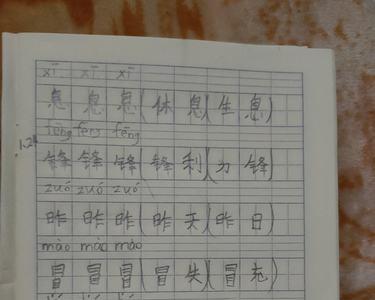 xī xī xī
息 息 息 (休 息) (生 息)
fēng fēng fēng
锋 锋 锋 (锋 利) (刀 锋)
zuó zuó zuó
昨 昨 昨 (昨 天) (昨 日)
mào mào mào
冒 冒 冒 (冒 失) (冒 充)